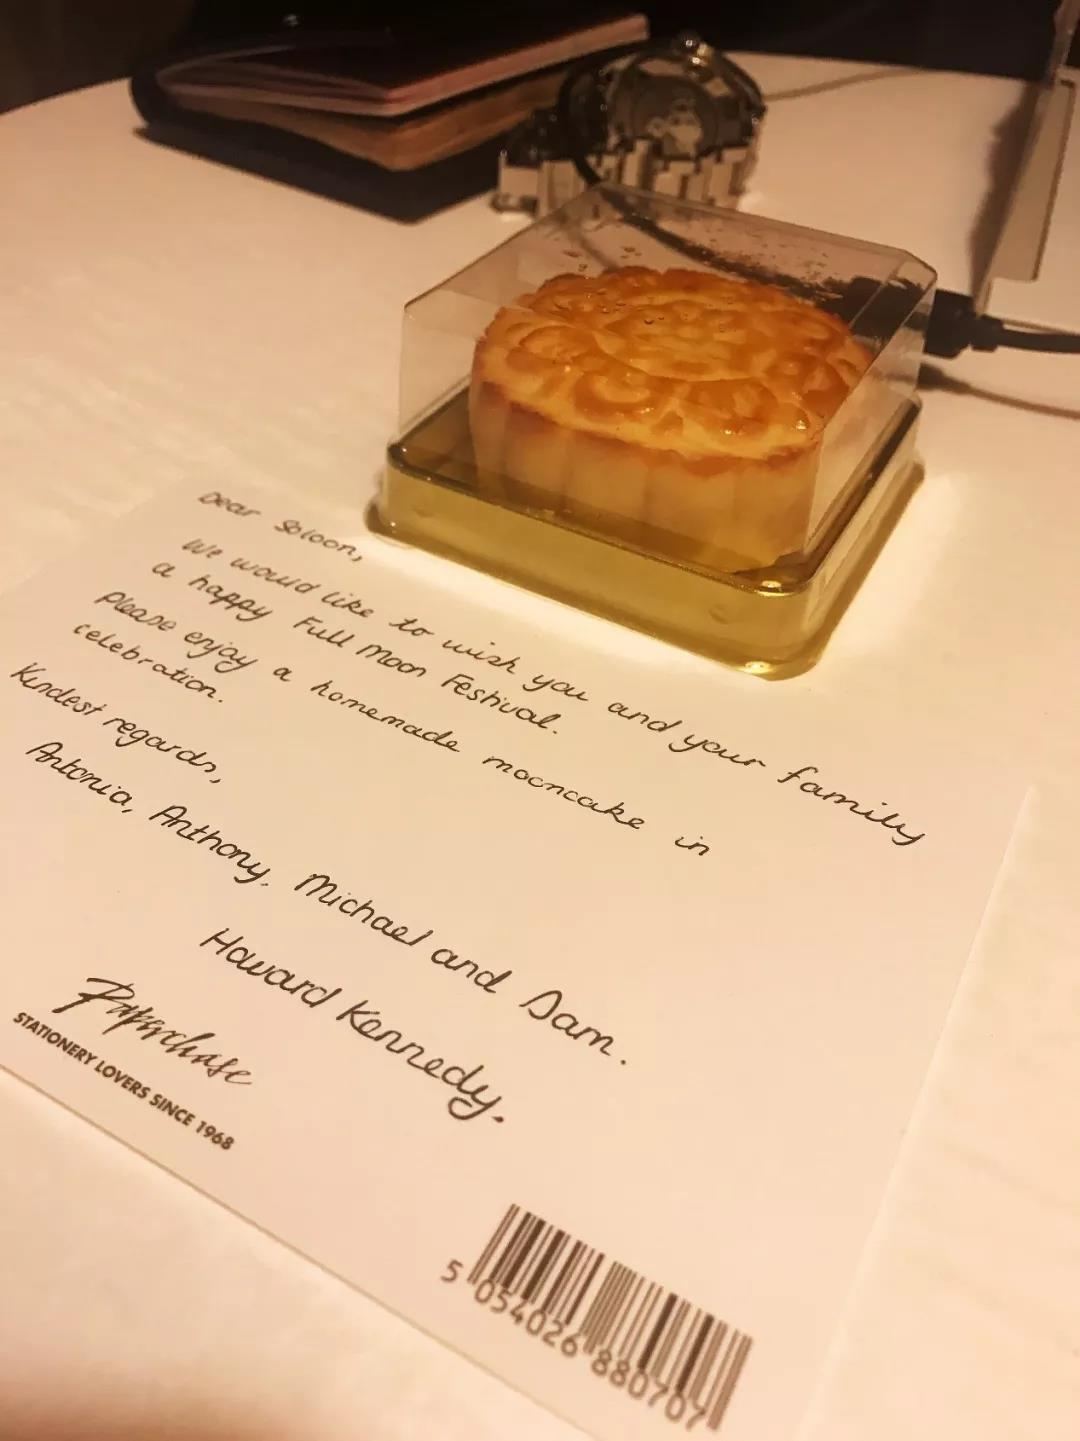 Dear Soloon,
We would like to wish you and your family
a happy Full Moon Festival.
Please enjoy a homemade mooncake in
celebration.
Kindest regards,
Antonia, Anthony, Michael and Sam.
Howard Kennedy.
Paperchase
STATIONERY LOVERS SINCE 1968
5 054026 880707